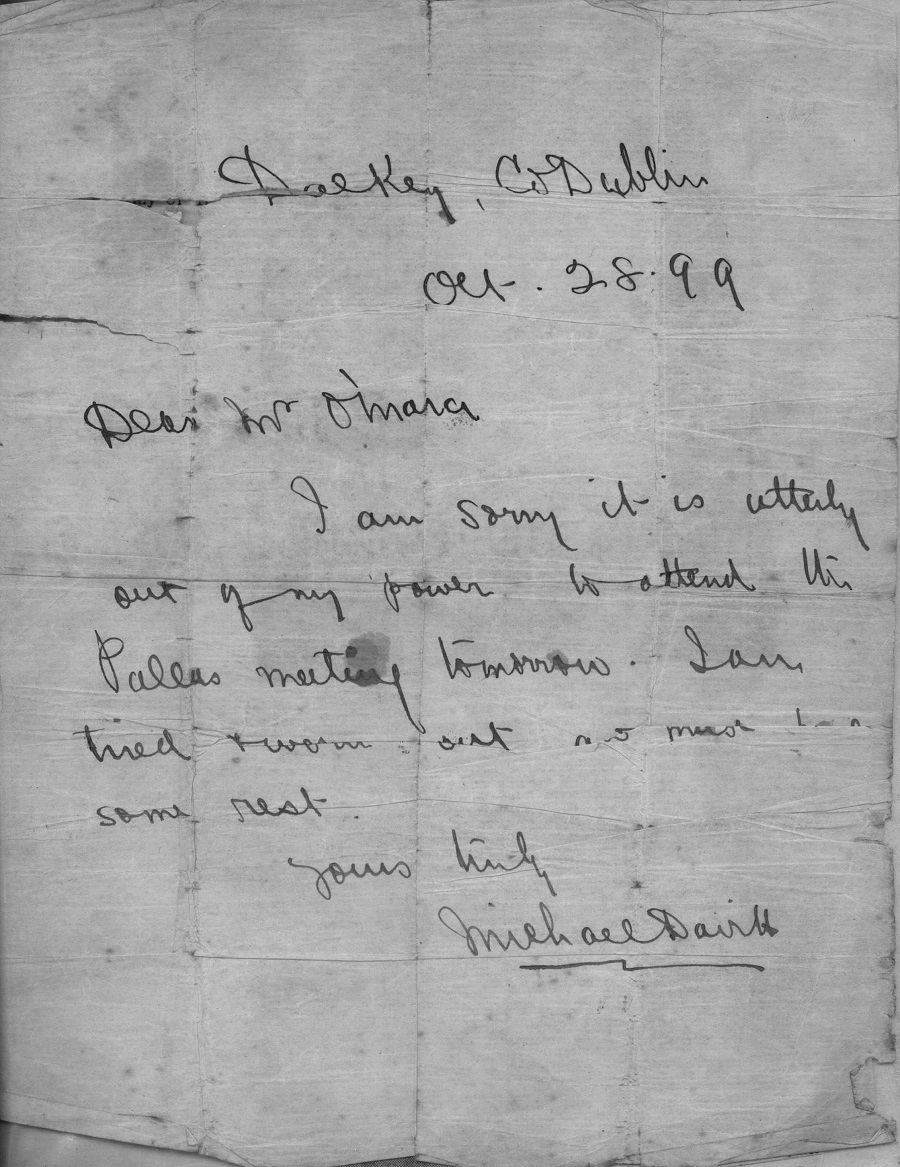 Dalkey, Co Dublin
Oct. 28. 99
Dear Mr O'Mara
I am sorry it is utterly
out of my power to attend the
Pallas meeting tomorrow. I am
tired & worn out and must
some rest.
Yours truly
Michael Davitt